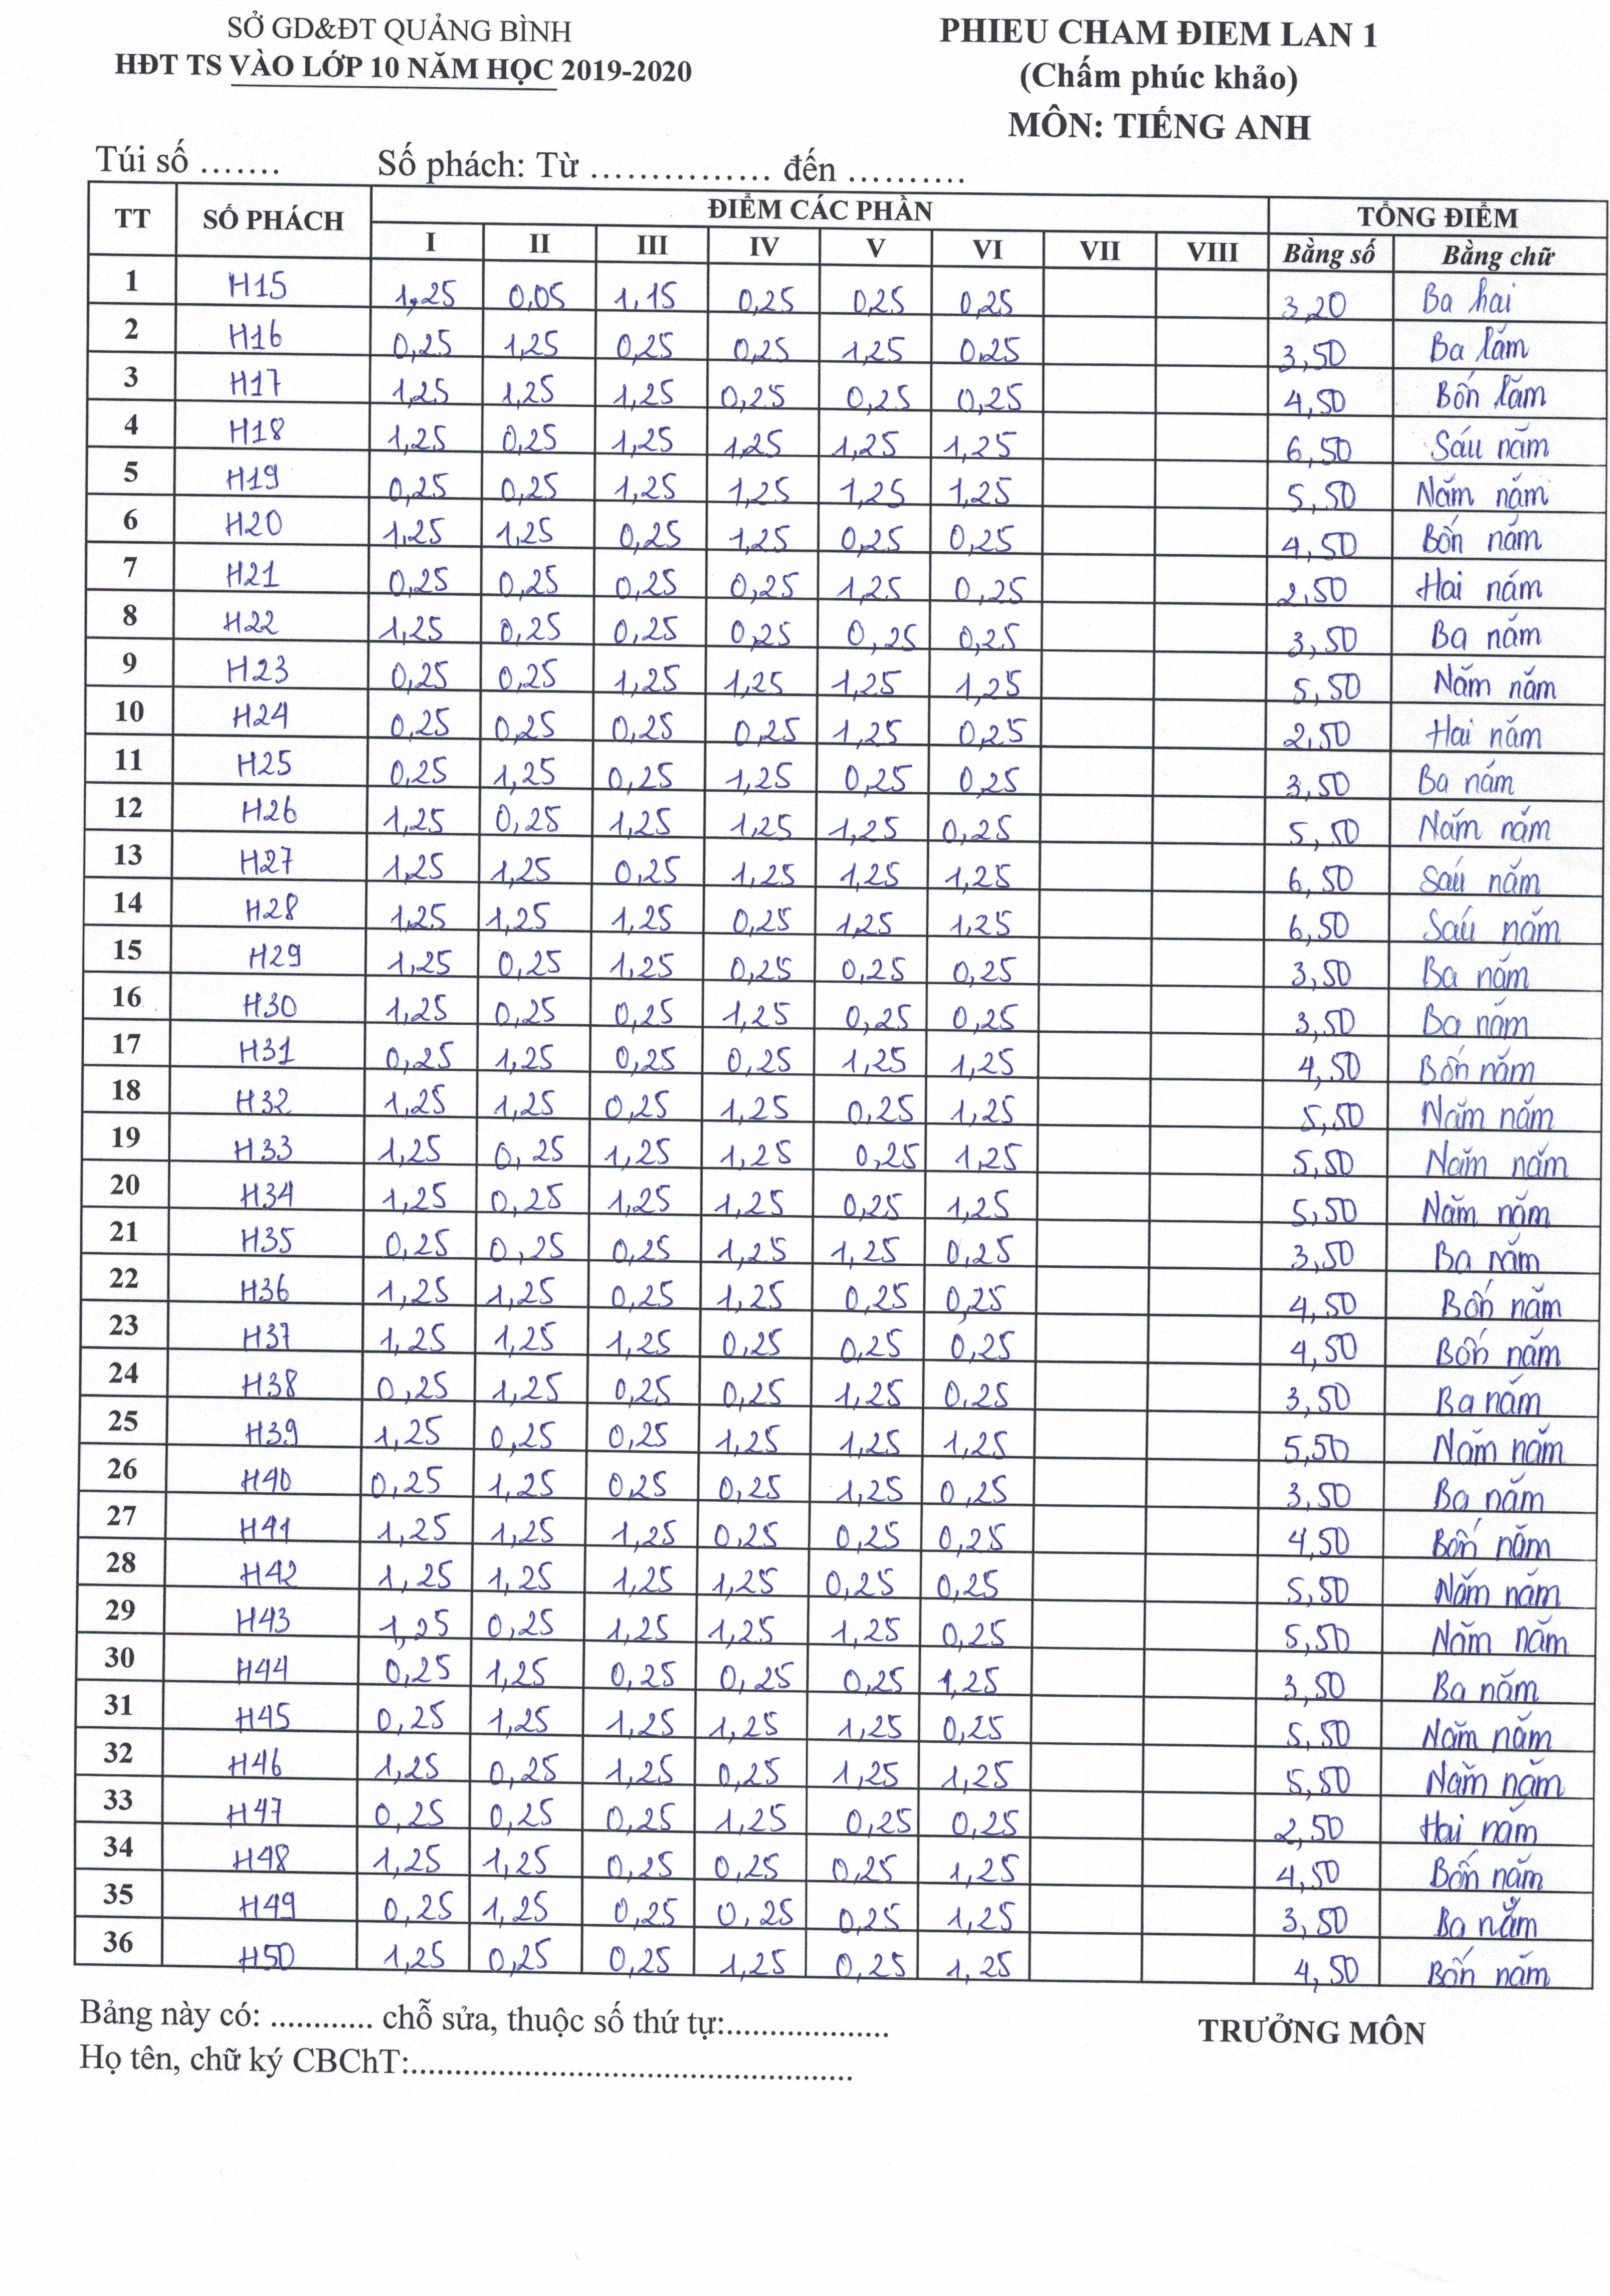 SỞ GD&ĐT QUẢNG BÌNH
HĐT TS VÀO LỚP 10 NĂM HỌC 2019-2020
PHIEU CHAM ĐIEM LAN 1
(Chấm phúc khảo)
MÔN: TIẾNG ANH
Túi số ....... Số phách: Từ ............... đến ..........
TT SỐ PHÁCH ĐIỂM CÁC PHẦN TỔNG ĐIỂM
I II III IV V VI VII VIII Bằng số Bằng chữ
1 H15 1,25 0,05 1,15 0,25 0,25 0,25 3,20 Ba hai
2 H16 0,25 1,25 0,25 0,25 1,25 0,25 3,50 Ba lăm
3 H17 1,25 1,25 1,25 0,25 0,25 0,25 4,50 Bốn lăm
4 H18 1,25 0,25 1,25 1,25 1,25 1,25 6,50 Sáu năm
5 H19 0,25 0,25 1,25 1,25 1,25 1,25 5,50 Năm năm
6 H20 1,25 1,25 0,25 1,25 0,25 0,25 4,50 Bốn năm
7 H21 0,25 0,25 0,25 0,25 1,25 0,25 2,50 Hai năm
8 H22 1,25 0,25 0,25 0,25 0,25 0,25 3,50 Ba năm
9 H23 0,25 0,25 1,25 1,25 1,25 1,25 5,50 Năm năm
10 H24 0,25 0,25 0,25 0,25 1,25 0,25 2,50 Hai năm
11 H25 0,25 1,25 0,25 1,25 0,25 0,25 3,50 Ba năm
12 H26 1,25 0,25 1,25 1,25 1,25 0,25 5,50 Năm năm
13 H27 1,25 1,25 0,25 1,25 1,25 1,25 6,50 Sáu năm
14 H28 1,25 1,25 1,25 0,25 1,25 1,25 6,50 Sáu năm
15 H29 1,25 0,25 1,25 0,25 0,25 0,25 3,50 Ba năm
16 H30 1,25 0,25 0,25 1,25 0,25 0,25 3,50 Ba năm
17 H31 0,25 1,25 0,25 0,25 1,25 1,25 4,50 Bốn năm
18 H32 1,25 1,25 0,25 1,25 0,25 1,25 5,50 Năm năm
19 H33 1,25 0,25 1,25 1,25 0,25 1,25 5,50 Năm năm
20 H34 1,25 0,25 1,25 1,25 0,25 1,25 5,50 Năm năm
21 H35 0,25 0,25 0,25 1,25 1,25 0,25 3,50 Ba năm
22 H36 1,25 1,25 0,25 1,25 0,25 0,25 4,50 Bốn năm
23 H37 1,25 1,25 1,25 0,25 0,25 0,25 4,50 Bốn năm
24 H38 0,25 1,25 0,25 0,25 1,25 0,25 3,50 Ba năm
25 H39 1,25 0,25 0,25 1,25 1,25 1,25 5,50 Năm năm
26 H40 0,25 1,25 0,25 0,25 1,25 0,25 3,50 Ba năm
27 H41 1,25 1,25 1,25 0,25 0,25 0,25 4,50 Bốn năm
28 H42 1,25 1,25 1,25 1,25 0,25 0,25 5,50 Năm năm
29 H43 1,25 0,25 1,25 1,25 1,25 0,25 5,50 Năm năm
30 H44 0,25 1,25 0,25 0,25 0,25 1,25 3,50 Ba năm
31 H45 0,25 1,25 1,25 1,25 1,25 0,25 5,50 Năm năm
32 H46 1,25 0,25 1,25 0,25 1,25 1,25 5,50 Năm năm
33 H47 0,25 0,25 0,25 1,25 0,25 0,25 2,50 Hai năm
34 H48 1,25 1,25 0,25 0,25 0,25 1,25 4,50 Bốn năm
35 H49 0,25 1,25 0,25 0,25 0,25 1,25 3,50 Ba năm
36 H50 1,25 0,25 0,25 1,25 0,25 1,25 4,50 Bốn năm
Bảng này có: ............ chỗ sửa, thuộc số thứ tự:...................
TRƯỞNG MÔN
Họ tên, chữ ký CBChT:....................................................